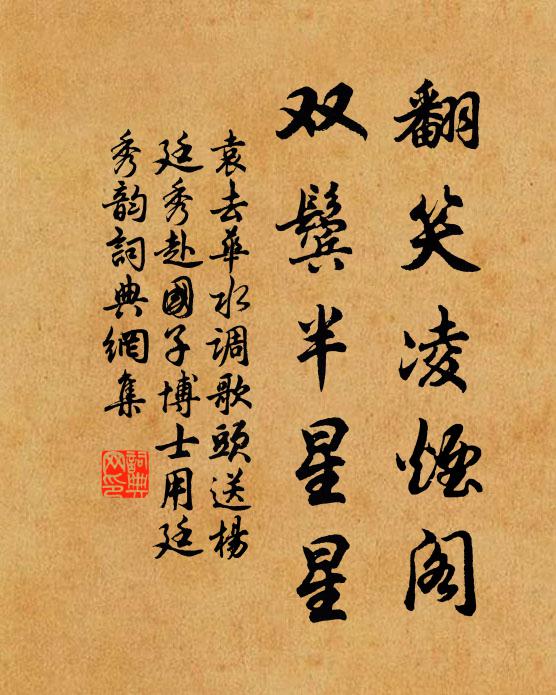 翻笑凌烟阁
双鬓半星星
袁去華水调歌頭送楊
廷秀赴國子博士用廷
秀韵詞典網集
詞典
网印